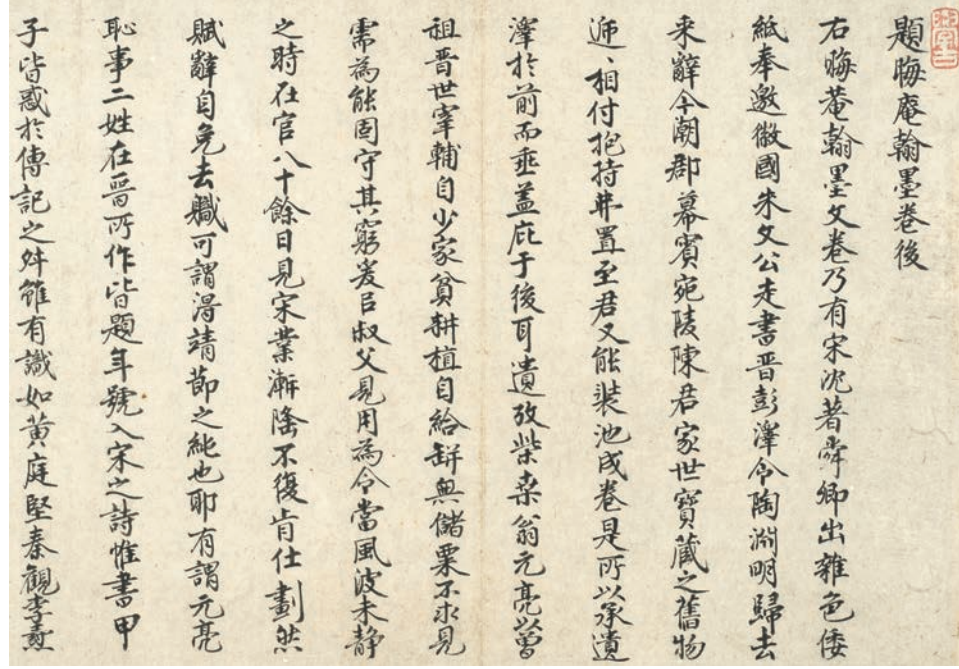 題晦庵翰墨卷後
右晦菴翰墨文卷乃有宋沈著舜卿出雜色倭
紙奉邀徽國朱文公走書晋彭澤令陶淵明歸去
来辭今潮郡幕賓宛陵陳君家世寶蔵之舊物
逓、相付抱持弗置至君又能裝池成卷是所以承遺
澤於前而垂盖庇于後耳遺攷柴桒翁元亮以曽
祖晋世宰輔自少家貧耕植自給缾無儲粟不求見
需為能固守其窮爰㠯叔父見用為令當風波未静
之時在官八十餘日見宋業漸隆不復肯仕劃然
賦辭自免去職可謂淂靖節之純也耶有謂元亮
恥事二姓在晋所作皆題年號入宋之詩惟書甲
子皆惑於傳記之舛雖有識如黄庭堅秦觀李燾